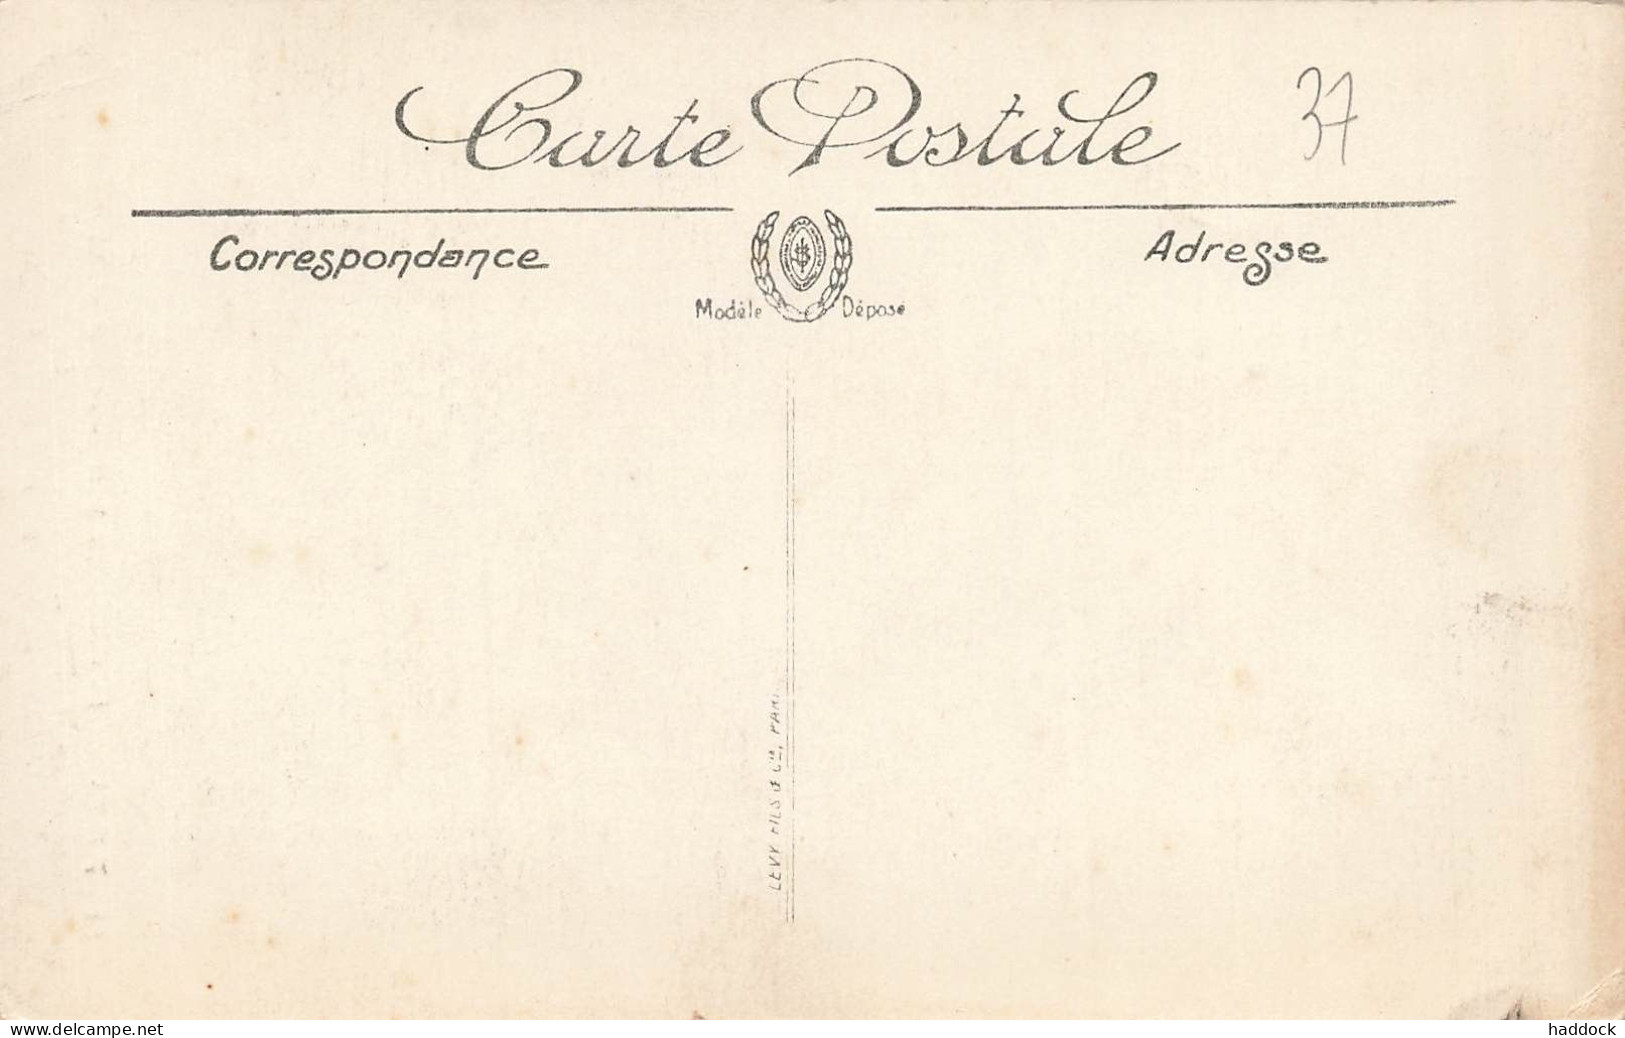 Carte Postale
37
Correspondance
Adresse
Modèle Déposé
LEVY FILS & Cie, PARIS
www.delcampe.net
haddock